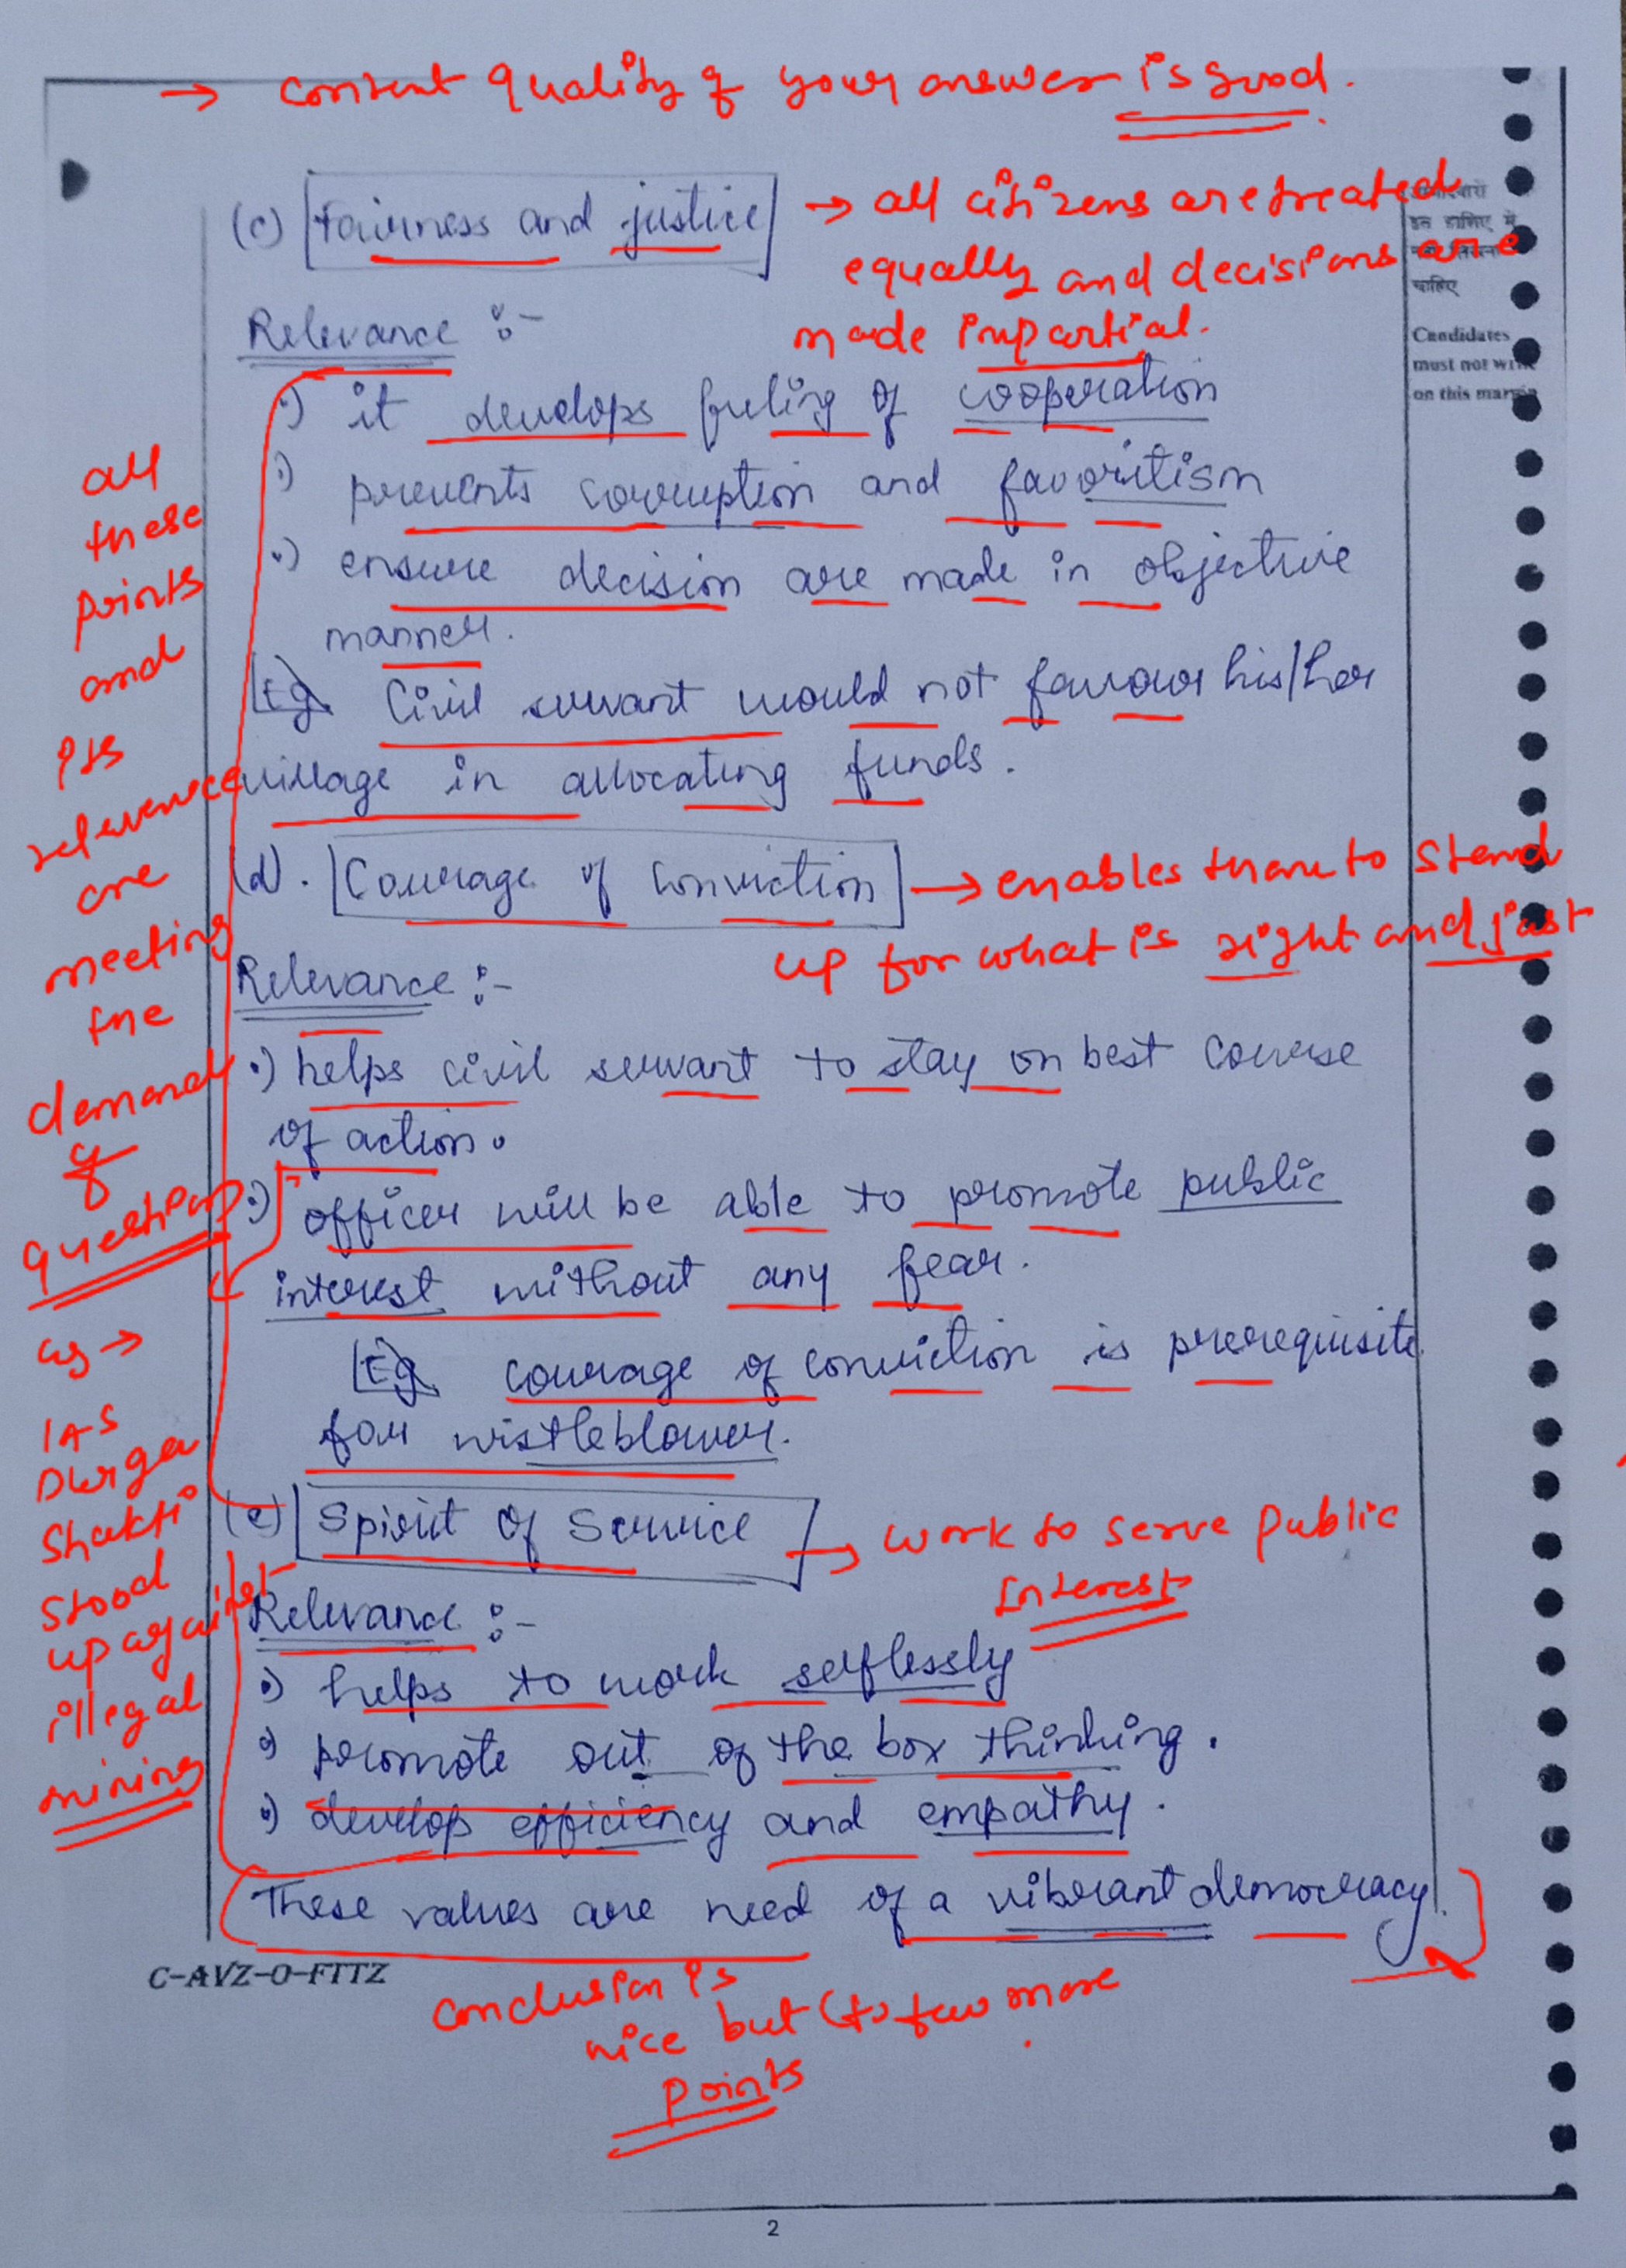 → content quality of your answer is good.
(c) Fairness and justice → all citizens are treated
equally and decisions are
made impartial.
इस हाशिए में
चाहिए
Candidates
must not write
on this margin
Relevance :-
•) it develops feeling of cooperation
•) prevents corruption and favoritism
•) ensure decision are made in objective
manner.
Eg Civil servant would not favour his/her
village in allocating funds.
all
these
points
and
its
relevence
are
meeting
the
demand
of
question
(d). Courage of Conviction → enables them to stand
up for what is right and just
Relevance :-
•) helps civil servant to stay on best course
of action.
•) officer will be able to promote public
interest without any fear.
Eg courage of conviction is prerequisite
for wistleblower.
eg →
IAS
Durga
Shakti
stood
up against
illegal
mining
(e) Spirit of Service → work to serve public
Interest
Relevance :-
•) helps to work selflessly
•) promote out of the box thinking.
•) develop efficiency and empathy.
These values are need of a vibrant democracy.
C-AVZ-O-FTTZ
conclusion is
nice but (to few more
points
2